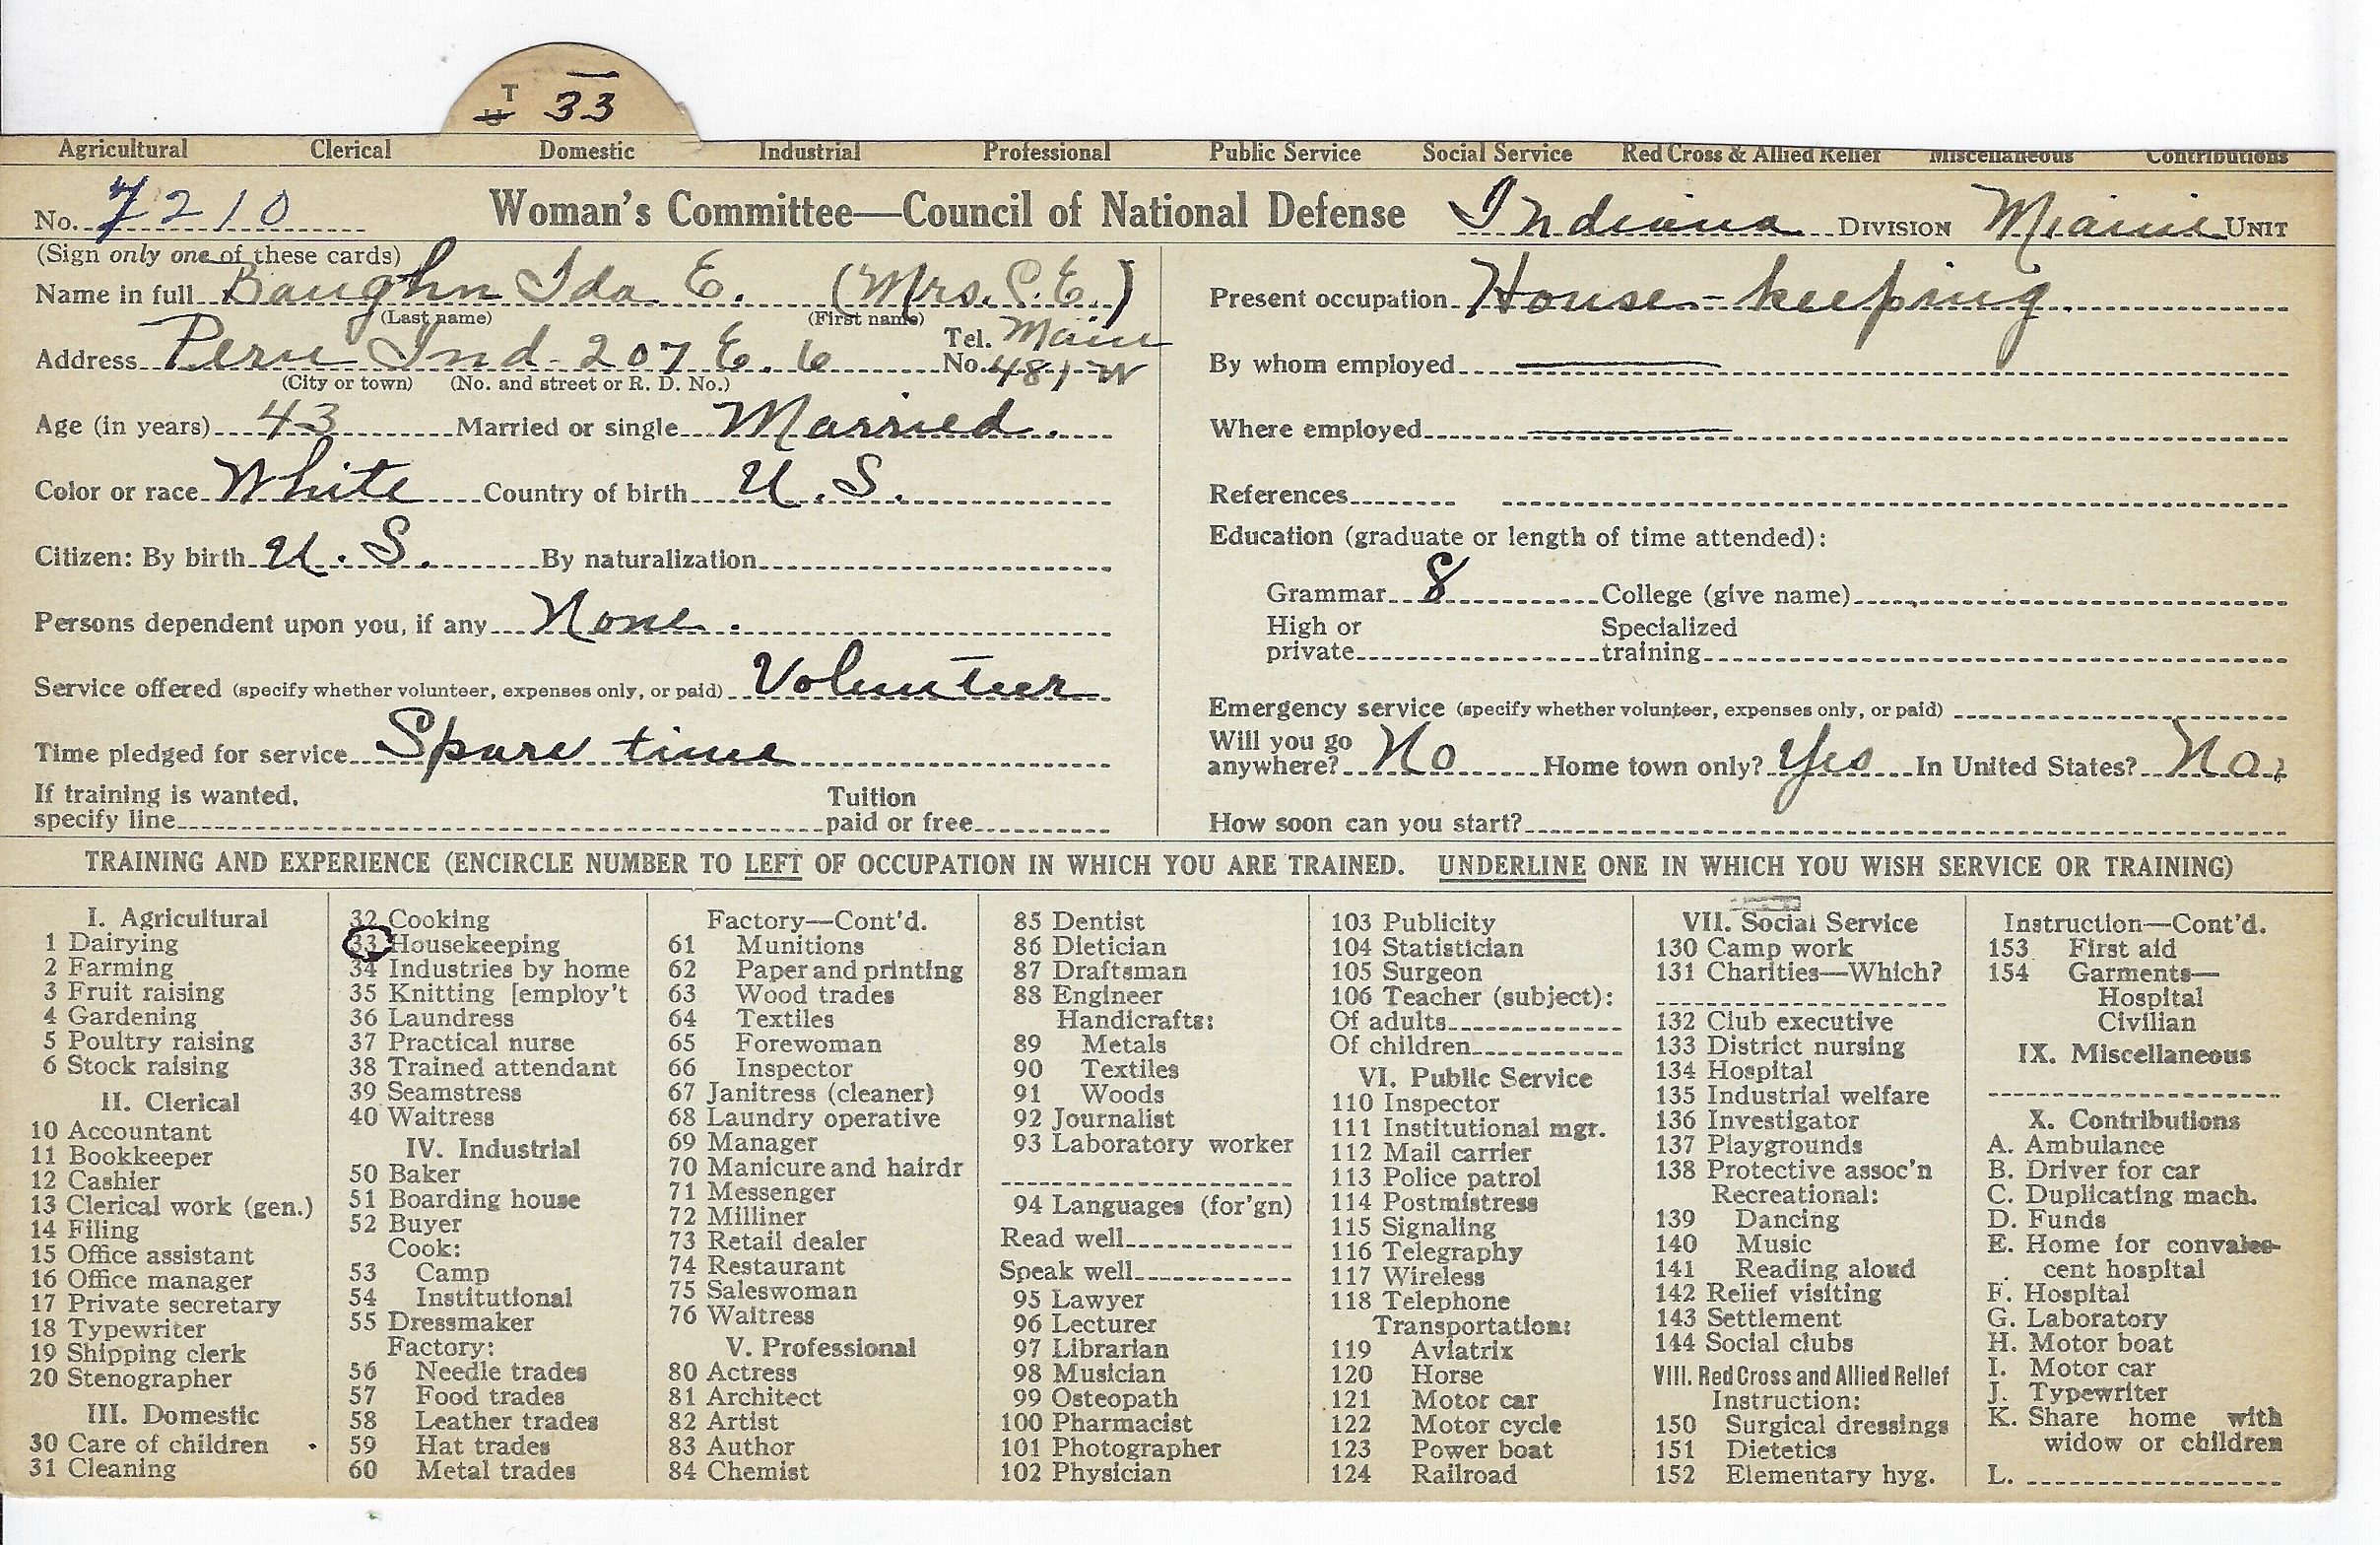 T
U 33
Agricultural Clerical Domestic Industrial Professional Public Service Social Service Red Cross & Allied Relief Miscellaneous Contributions
No. 7210 Woman's Committee—Council of National Defense Indiana DIVISION Miami UNIT
(Sign only one of these cards)
Name in full Baughn Ida E. (Mrs. S.E.)
(Last name) (First name)
Address Peru Ind. 207 E. 6 Tel. No. Main 481-W
(City or town) (No. and street or R. D. No.)
Age (in years) 43 Married or single Married.
Color or race White Country of birth U.S.
Citizen: By birth U.S. By naturalization
Persons dependent upon you, if any None.
Service offered (specify whether volunteer, expenses only, or paid) Volunteer
Time pledged for service Spare time
If training is wanted, specify line Tuition paid or free
Present occupation House-keeping.
By whom employed ——
Where employed ——
References
Education (graduate or length of time attended):
Grammar 8 College (give name)
High or private Specialized training
Emergency service (specify whether volunteer, expenses only, or paid)
Will you go anywhere? No Home town only? Yes In United States? No.
How soon can you start?
TRAINING AND EXPERIENCE (ENCIRCLE NUMBER TO LEFT OF OCCUPATION IN WHICH YOU ARE TRAINED. UNDERLINE ONE IN WHICH YOU WISH SERVICE OR TRAINING)
I. Agricultural
1 Dairying
2 Farming
3 Fruit raising
4 Gardening
5 Poultry raising
6 Stock raising
II. Clerical
10 Accountant
11 Bookkeeper
12 Cashier
13 Clerical work (gen.)
14 Filing
15 Office assistant
16 Office manager
17 Private secretary
18 Typewriter
19 Shipping clerk
20 Stenographer
III. Domestic
30 Care of children
31 Cleaning
32 Cooking
33 Housekeeping
34 Industries by home
35 Knitting [employ't
36 Laundress
37 Practical nurse
38 Trained attendant
39 Seamstress
40 Waitress
IV. Industrial
50 Baker
51 Boarding house
52 Buyer
Cook:
53 Camp
54 Institutional
55 Dressmaker
Factory:
56 Needle trades
57 Food trades
58 Leather trades
59 Hat trades
60 Metal trades
Factory—Cont'd.
61 Munitions
62 Paper and printing
63 Wood trades
64 Textiles
65 Forewoman
66 Inspector
67 Janitress (cleaner)
68 Laundry operative
69 Manager
70 Manicure and hairdr
71 Messenger
72 Milliner
73 Retail dealer
74 Restaurant
75 Saleswoman
76 Waitress
V. Professional
80 Actress
81 Architect
82 Artist
83 Author
84 Chemist
85 Dentist
86 Dietician
87 Draftsman
88 Engineer
Handicrafts:
89 Metals
90 Textiles
91 Woods
92 Journalist
93 Laboratory worker
94 Languages (for'gn)
Read well
Speak well
95 Lawyer
96 Lecturer
97 Librarian
98 Musician
99 Osteopath
100 Pharmacist
101 Photographer
102 Physician
103 Publicity
104 Statistician
105 Surgeon
106 Teacher (subject):
Of adults
Of children
VI. Public Service
110 Inspector
111 Institutional mgr.
112 Mail carrier
113 Police patrol
114 Postmistress
115 Signaling
116 Telegraphy
117 Wireless
118 Telephone
Transportation:
119 Aviatrix
120 Horse
121 Motor car
122 Motor cycle
123 Power boat
124 Railroad
VII. Social Service
130 Camp work
131 Charities—Which?
132 Club executive
133 District nursing
134 Hospital
135 Industrial welfare
136 Investigator
137 Playgrounds
138 Protective assoc'n
Recreational:
139 Dancing
140 Music
141 Reading aloud
142 Relief visiting
143 Settlement
144 Social clubs
VIII. Red Cross and Allied Relief
Instruction:
150 Surgical dressings
151 Dietetics
152 Elementary hyg.
Instruction—Cont'd.
153 First aid
154 Garments—
Hospital
Civilian
IX. Miscellaneous
X. Contributions
A. Ambulance
B. Driver for car
C. Duplicating mach.
D. Funds
E. Home for convales-
cent hospital
F. Hospital
G. Laboratory
H. Motor boat
I. Motor car
J. Typewriter
K. Share home with
widow or children
L.